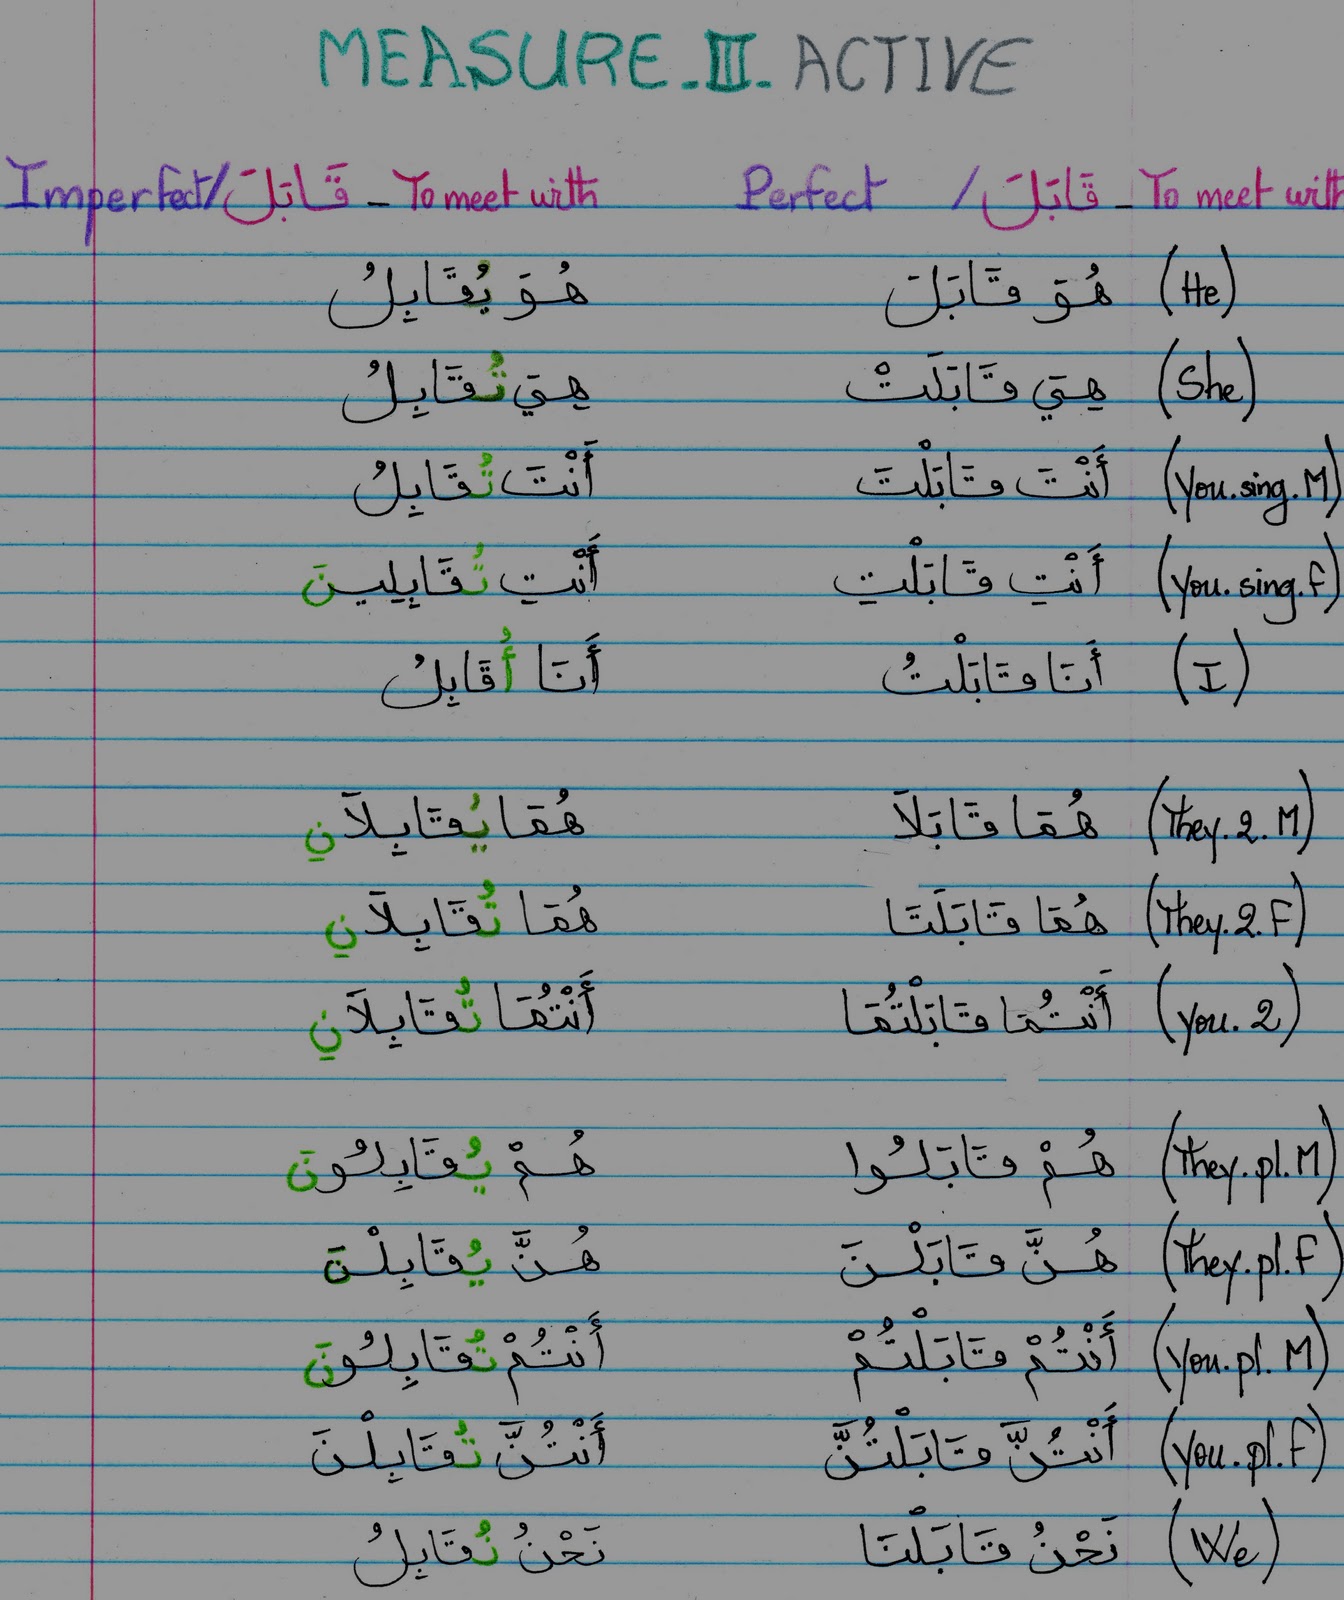 MEASURE-III- ACTIVE
Imperfect/قَابَلَ - To meet with Perfect /قَابَلَ - To meet with
(He) هُوَ قَابَلَ هُوَ يُقَابِلُ
(She) هِيَ قَابَلَتْ هِيَ تُقَابِلُ
(You.sing.M) أَنْتَ قَابَلْتَ أَنْتَ تُقَابِلُ
(You.sing.F) أَنْتِ قَابَلْتِ أَنْتِ تُقَابِلِينَ
(I) أَنَا قَابَلْتُ أَنَا أُقَابِلُ
(They.2.M) هُمَا قَابَلَا هُمَا يُقَابِلَانِ
(They.2.F) هُمَا قَابَلَتَا هُمَا تُقَابِلَانِ
(you.2) أَنْتُمَا قَابَلْتُمَا أَنْتُمَا تُقَابِلَانِ
(They.pl.M) هُمْ قَابَلُوا هُمْ يُقَابِلُونَ
(They.pl.F) هُنَّ قَابَلْنَ هُنَّ يُقَابِلْنَ
(You.pl.M) أَنْتُمْ قَابَلْتُمْ أَنْتُمْ تُقَابِلُونَ
(You.pl.F) أَنْتُنَّ قَابَلْتُنَّ أَنْتُنَّ تُقَابِلْنَ
(We) نَحْنُ قَابَلْنَا نَحْنُ نُقَابِلُ